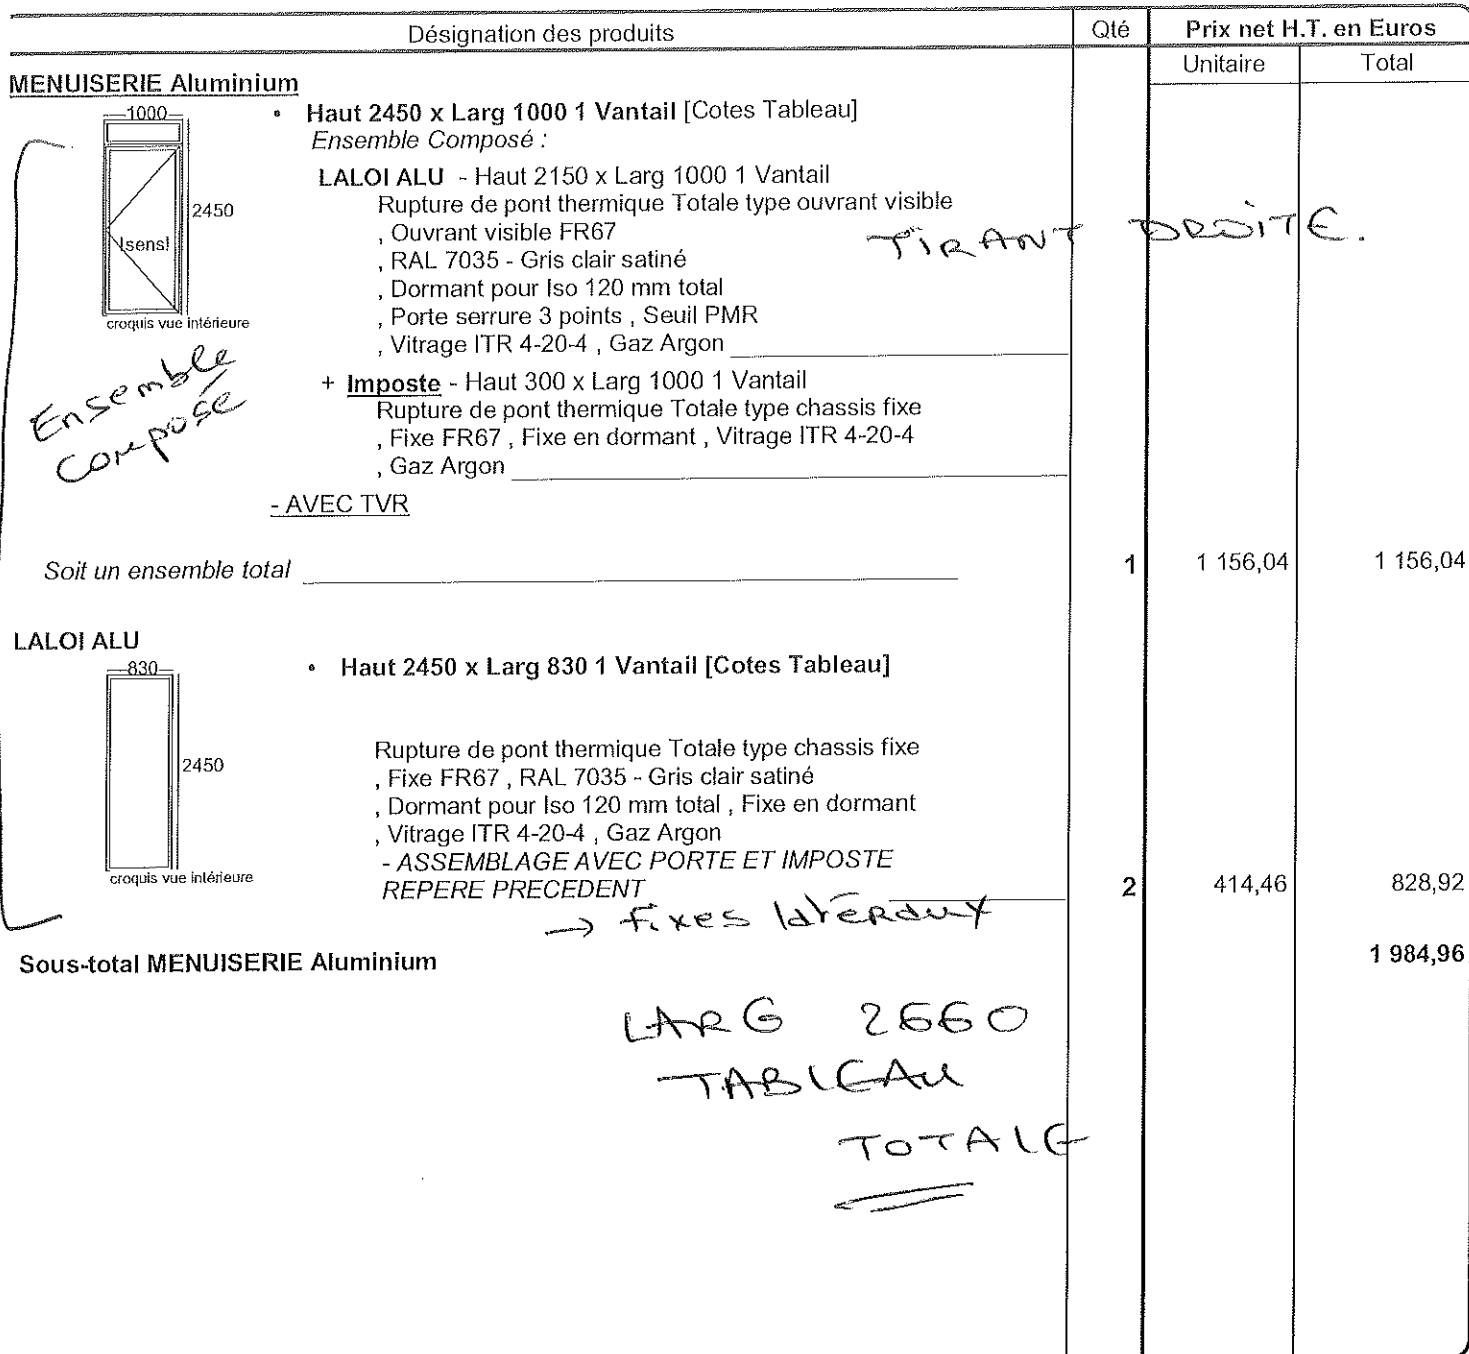 Désignation des produits Qté Prix net H.T. en Euros
Unitaire Total
MENUISERIE Aluminium
1000
2450
!sens!
croquis vue intérieure
• Haut 2450 x Larg 1000 1 Vantail [Cotes Tableau]
Ensemble Composé :
LALOI ALU - Haut 2150 x Larg 1000 1 Vantail
Rupture de pont thermique Totale type ouvrant visible
, Ouvrant visible FR67
TIRANT DROITE.
, RAL 7035 - Gris clair satiné
, Dormant pour Iso 120 mm total
, Porte serrure 3 points , Seuil PMR
, Vitrage ITR 4-20-4 , Gaz Argon
Ensemble
composé
+ Imposte - Haut 300 x Larg 1000 1 Vantail
Rupture de pont thermique Totale type chassis fixe
, Fixe FR67 , Fixe en dormant , Vitrage ITR 4-20-4
, Gaz Argon
- AVEC TVR
Soit un ensemble total 1 1 156,04 1 156,04
LALOI ALU
830
2450
croquis vue intérieure
• Haut 2450 x Larg 830 1 Vantail [Cotes Tableau]
Rupture de pont thermique Totale type chassis fixe
, Fixe FR67 , RAL 7035 - Gris clair satiné
, Dormant pour Iso 120 mm total , Fixe en dormant
, Vitrage ITR 4-20-4 , Gaz Argon
- ASSEMBLAGE AVEC PORTE ET IMPOSTE
REPERE PRECEDENT 2 414,46 828,92
→ fixes latéraux
Sous-total MENUISERIE Aluminium 1 984,96
LARG 2660
TABLEAU
TOTALE